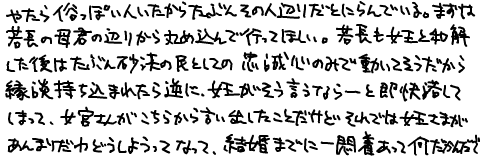 やたら俗っぽい人いたからたぶんその人辺りだとにらんでいる。まずは
若長の母君の辺りから丸め込んで行ってほしい。若長も女王と和解
した後はたぶん砂漠の民としての忠誠心のみで動いてそうだから
縁談持ち込まれたら逆に、女王がそう言うなら―と即快諾して
しまって、女官さんがこちらから言い出したことだけどそれでは女王さまが
あんまりだわどうしようってなって、結婚までに一悶着あって何だかんだで